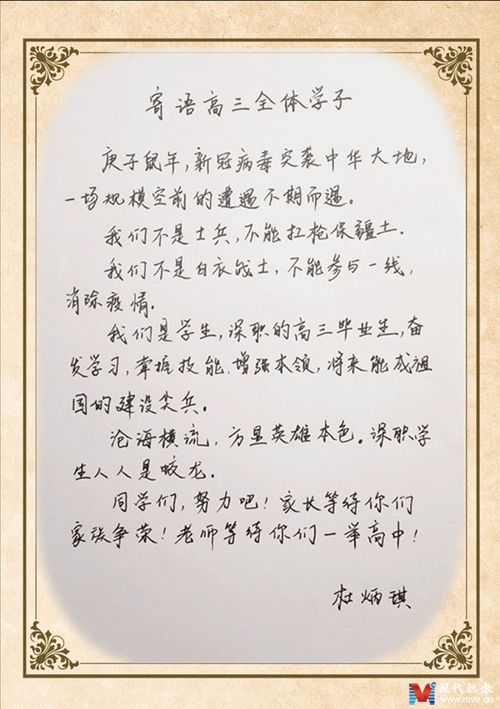 寄语高三全体学子
庚子鼠年，新冠病毒突袭中华大地，
一场规模空前的遭遇不期而遇。
我们不是士兵，不能扛枪保疆土.
我们不是白衣战士，不能参与一线，
消除疫情.
我们是学生，深职的高三毕业生，奋
发学习，掌握技能，增强本领，将来能成祖
国的建设尖兵。
沧海横流，方显英雄本色。深职学
生人人是蛟龙.
同学们，努力吧！家长等待你们
家族争荣！老师等待你们一举高中！
杜炳琪
现代职教
www.mve.cn